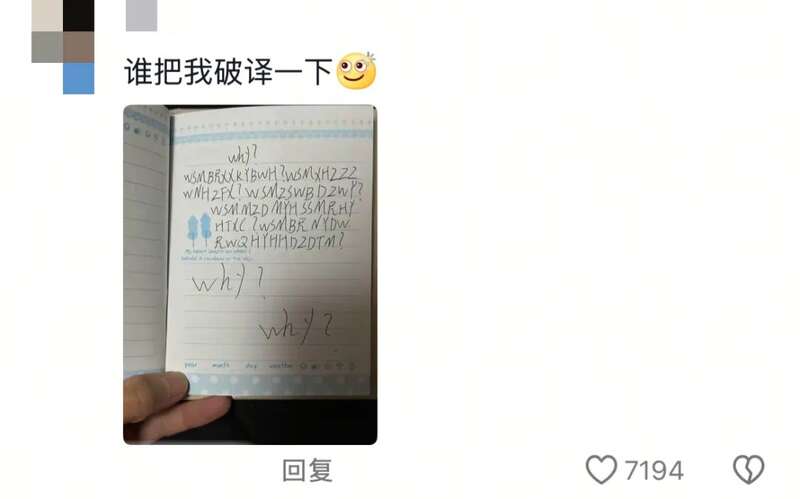 谁把我破译一下
why?
WSMBRXXKYBWH?WSMXHZZZ
WNHZFX?WSMZSWBDZWY?
WSMMZDMYHSSMRHY
HTXC?WSMBRNYDW
RWQHYHHDZDTM?
why?
why?
year month day weather
回复
7194